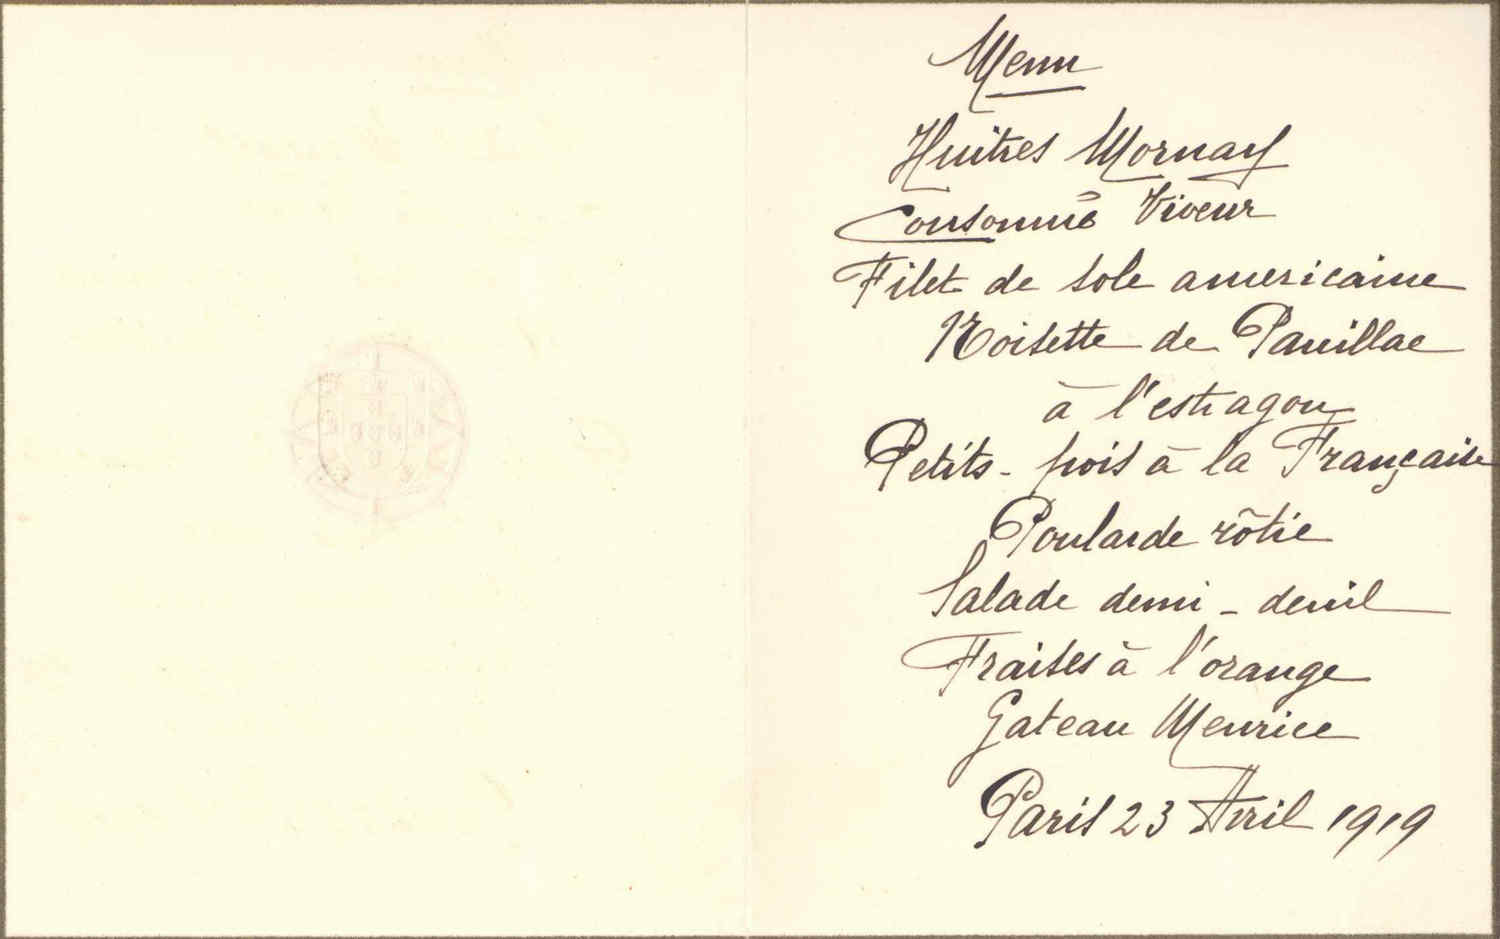 Menu
Huitres Mornay
Consommé Viveur
Filet de sole americaine
Noisette de Pauillac
à l'estragon
Petits-pois à la Française
Poularde rôtie
Salade demi-deuil
Fraises à l'orange
Gateau Meurice
Paris 23 Avril 1919